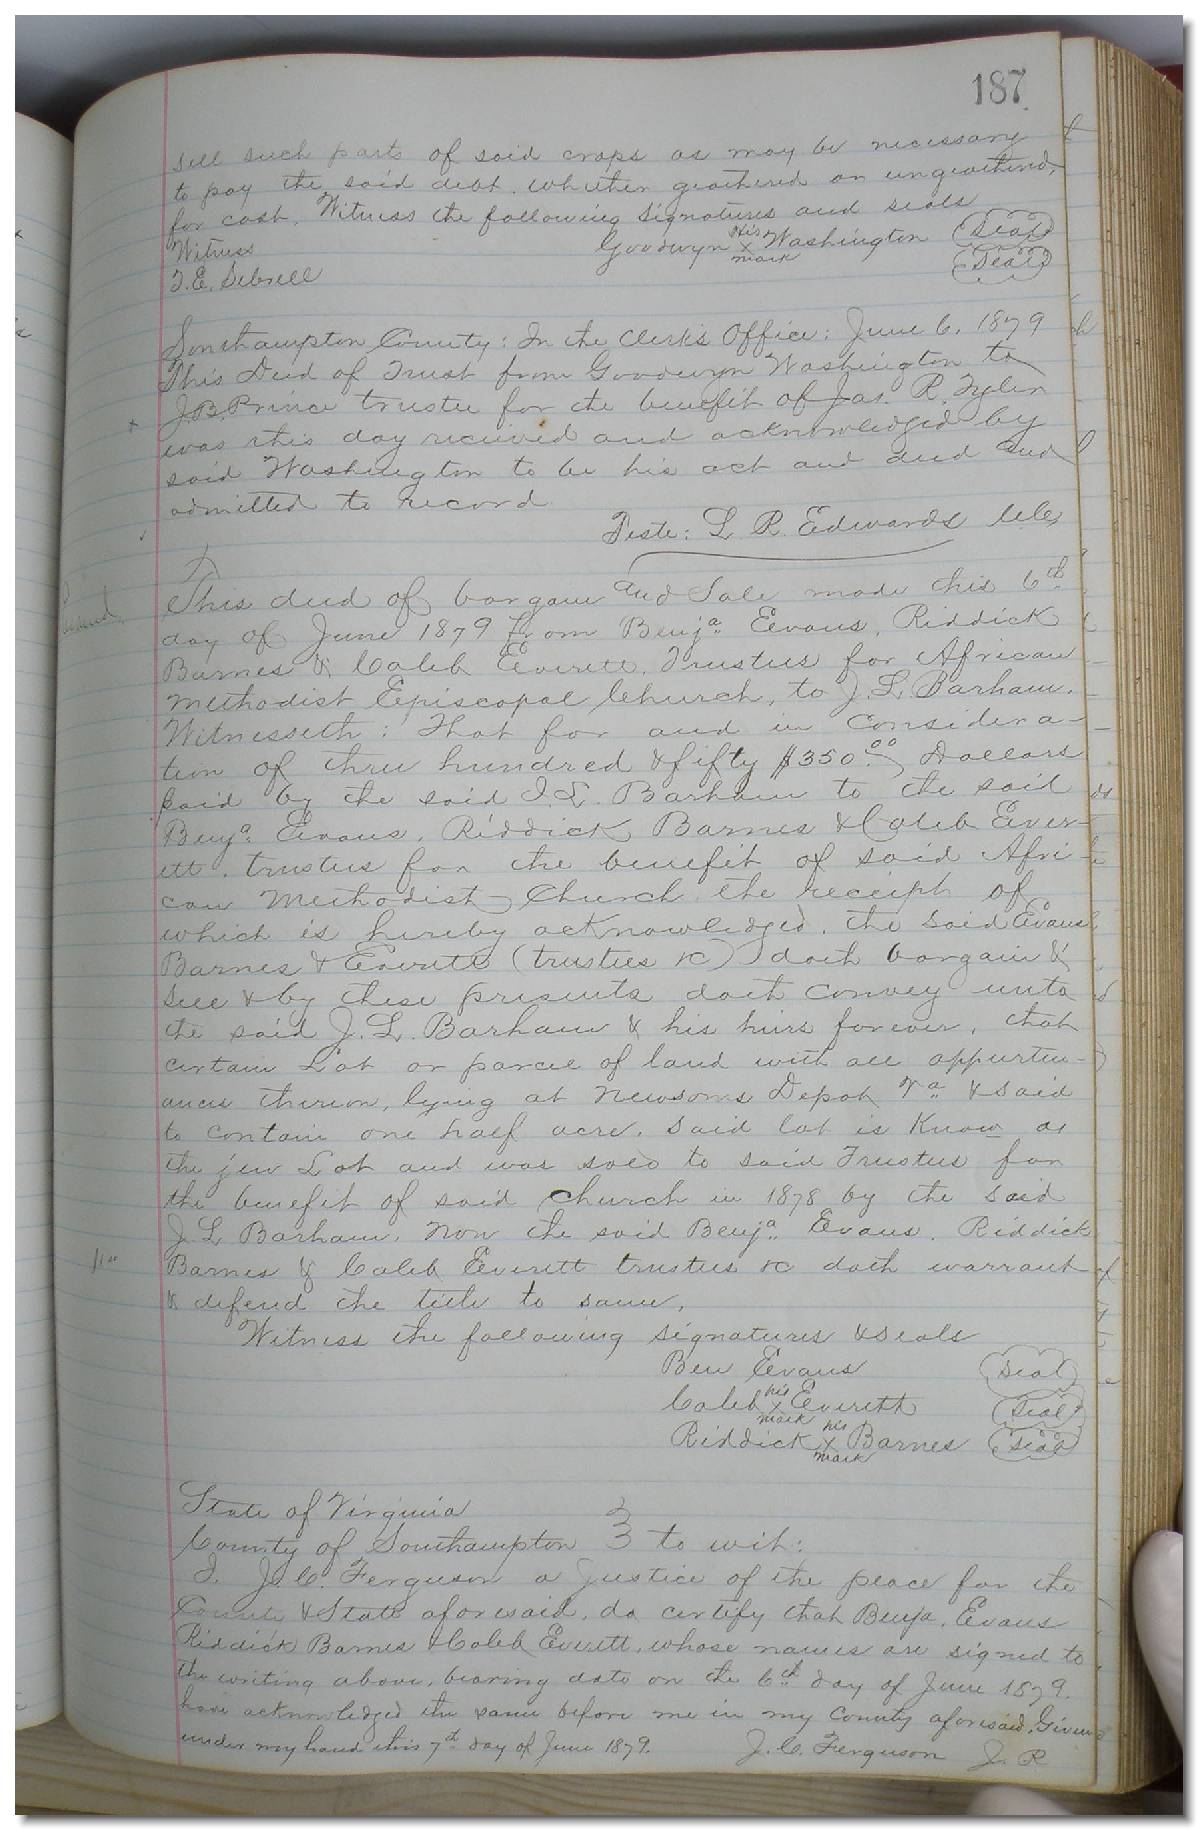 187
sell such parts of said crops as may be necessary
to pay the said debt, whether geathered or ungeathered,
for cash. Witness the following signatures and seals
Witness Goodwyn his x mark Washington (Seal)
T. E. Sebrell (Seal)
Southampton County: In the Clerk's Office: June 6, 1879
This Deed of Trust from Goodwyn Washington to
J.B. Prince trustee for the benefit of Jas. R. Tyler
was this day received and acknowledged by
said Washington to be his act and deed and
admitted to record
Teste: L. R. Edwards
This deed of bargain and Sale made this 6th
day of June 1879 from Benja. Evans, Riddick
Barnes & Caleb Everett, Trustees for African
Methodist Episcopal Church, to J. L. Barham,
Witnesseth: That for and in considera-
tion of three hundred & fifty $350.00) Dollars
paid by the said J. L. Barham to the said
Benja. Evans, Riddick Barnes & Caleb Ever-
ett, trustees for the benefit of said Afri-
can Methodist Church, the receipt of
which is hereby acknowledged, the said Evans
Barnes & Everett (trustees &c) doth bargain &
sell & by these presents doth convey unto
the said J. L. Barham & his heirs forever, that
certain Lot or parcel of land with all appurten-
ances thereon, lying at Newsoms Depot Va. & said
to contain one half acre. Said lot is Know as
the jew Lot and was sold to said Trustees for
the benefit of said Church in 1878 by the said
J L Barham. Now the said Benja. Evans, Riddick
Barnes & Caleb Everett trustees &c doth warrant
& defend the title to same.
Witness the following signatures & seals
Ben Evans (Seal)
Caleb his x mark Everett (Seal)
Riddick his x mark Barnes (Seal)
State of Virginia
County of Southampton } to wit:
I. J. C. Ferguson a Justice of the peace for the
County & State aforesaid, do certify that Benja. Evans
Riddick Barnes & Caleb Everett, whose names are signed to
the writing above, bearing date on the 6th day of June 1879.
have acknowledged the same before me in my County aforesaid. Given
under my hand this 7th day of June 1879. J. C. Ferguson J. P.